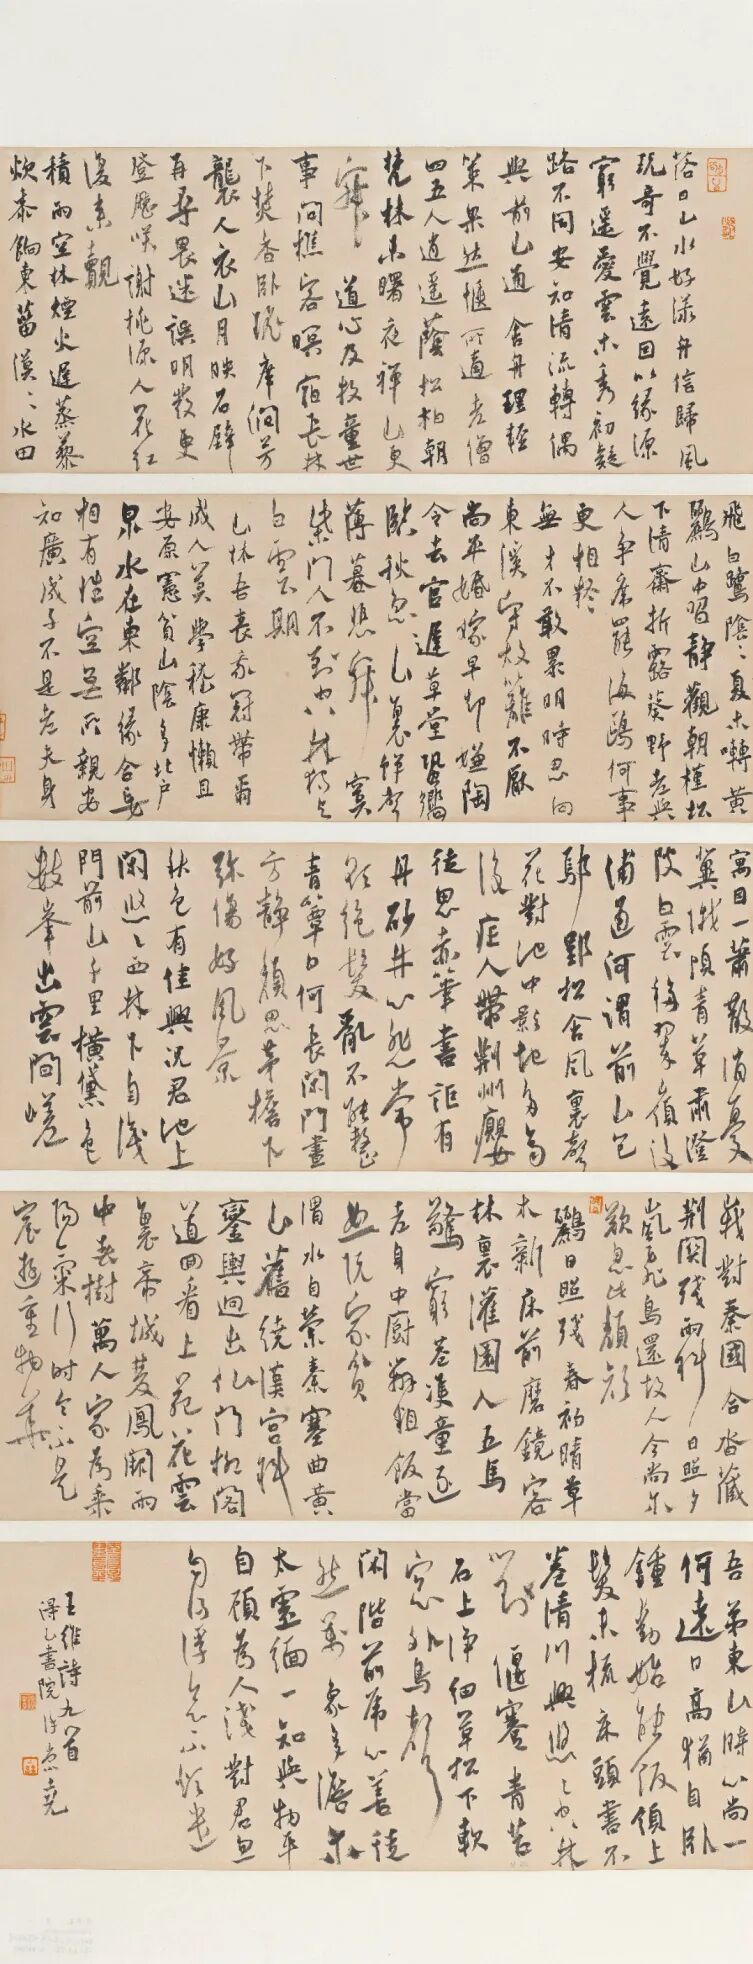 落日山水好漾舟信歸風
玩奇不覺遠因以緣源
窮遥愛雲木秀初疑
路不同安知清流轉偶
與前山通舍舟理輕
策果然愜所適老僧
四五人逍遥蔭松柏朝
梵林未曙夜禪山更
寂 道心及牧童世
事問樵客暝宿長林
下焚香卧瑶席澗芳
襲人衣山月映石壁
再尋畏迷誤明發更
登歷笑謝桃源人花紅
復來覿
積雨空林煙火遲蒸藜
炊黍餉東菑漠〻水田
飛白鷺陰〻夏木囀黄
鸝山中習静觀朝槿松
下清齋折露葵野老與
人争席罷海鷗何事
更相疑
無才不敢累明時思向
東溪守故籬不厭
尚平婚嫁早却嫌陶
令去官遲草堂蛩響
臨秋急山裏蟬聲
薄暮悲寂 寞
柴門人不到空林獨與
白雲期
山林吾喪我冠帶爾
成人莫學嵇康懶且
安原憲貧山陰多北户
泉水在東鄰緣合妄
相有性空無所親安
知廣成子不是老夫身
寓目一蕭散消憂
冀俄頃青草肅澄
陂白雲移翠嶺後
浦通河渭前山包
鄢郢松含風裏聲
花對池中影地多齊
後瘧人帶荆州癭
徒思赤筆書詎有
丹砂井心悲常
欲絶髮亂不能整
青簟日何長閑門晝
方静頹思茅檐下
弥傷好風景
秋色有佳興況君池上
閑悠〻西林下自識
門前山千里横黛色
數峯出雲間嵯
峩對秦國合沓藏
荆關殘雨斜日照夕
嵐飛鳥還故人今尚尔
歎息此頹顔
鸝日照殘春初晴草
木新床前磨鏡客
林裏灌園人五馬
驚窮巷雙童逐
老身中厨辦粗飯當
恕阮家貧
渭水自縈秦塞曲黄
山舊繞漢宮斜
鑾輿迥出仙門柳閣
道回看上苑花雲
裏帝城雙鳳闕雨
中春樹萬人家為乘
陽氣行時令不是
宸遊重物華
吾弟東山時心尚一
何遠日高猶自卧
鐘動始能飯領上
髮未梳床頭書不
卷清川興悠〻空林
對偃蹇青苔
石上净細草松下軟
窗外鳥聲
閑階前虎心善徒
然萬象多澹尔
太虚緬一知與物平
自顧為人淺對君忽
自得浮念不煩遣
王維詩九首
書院